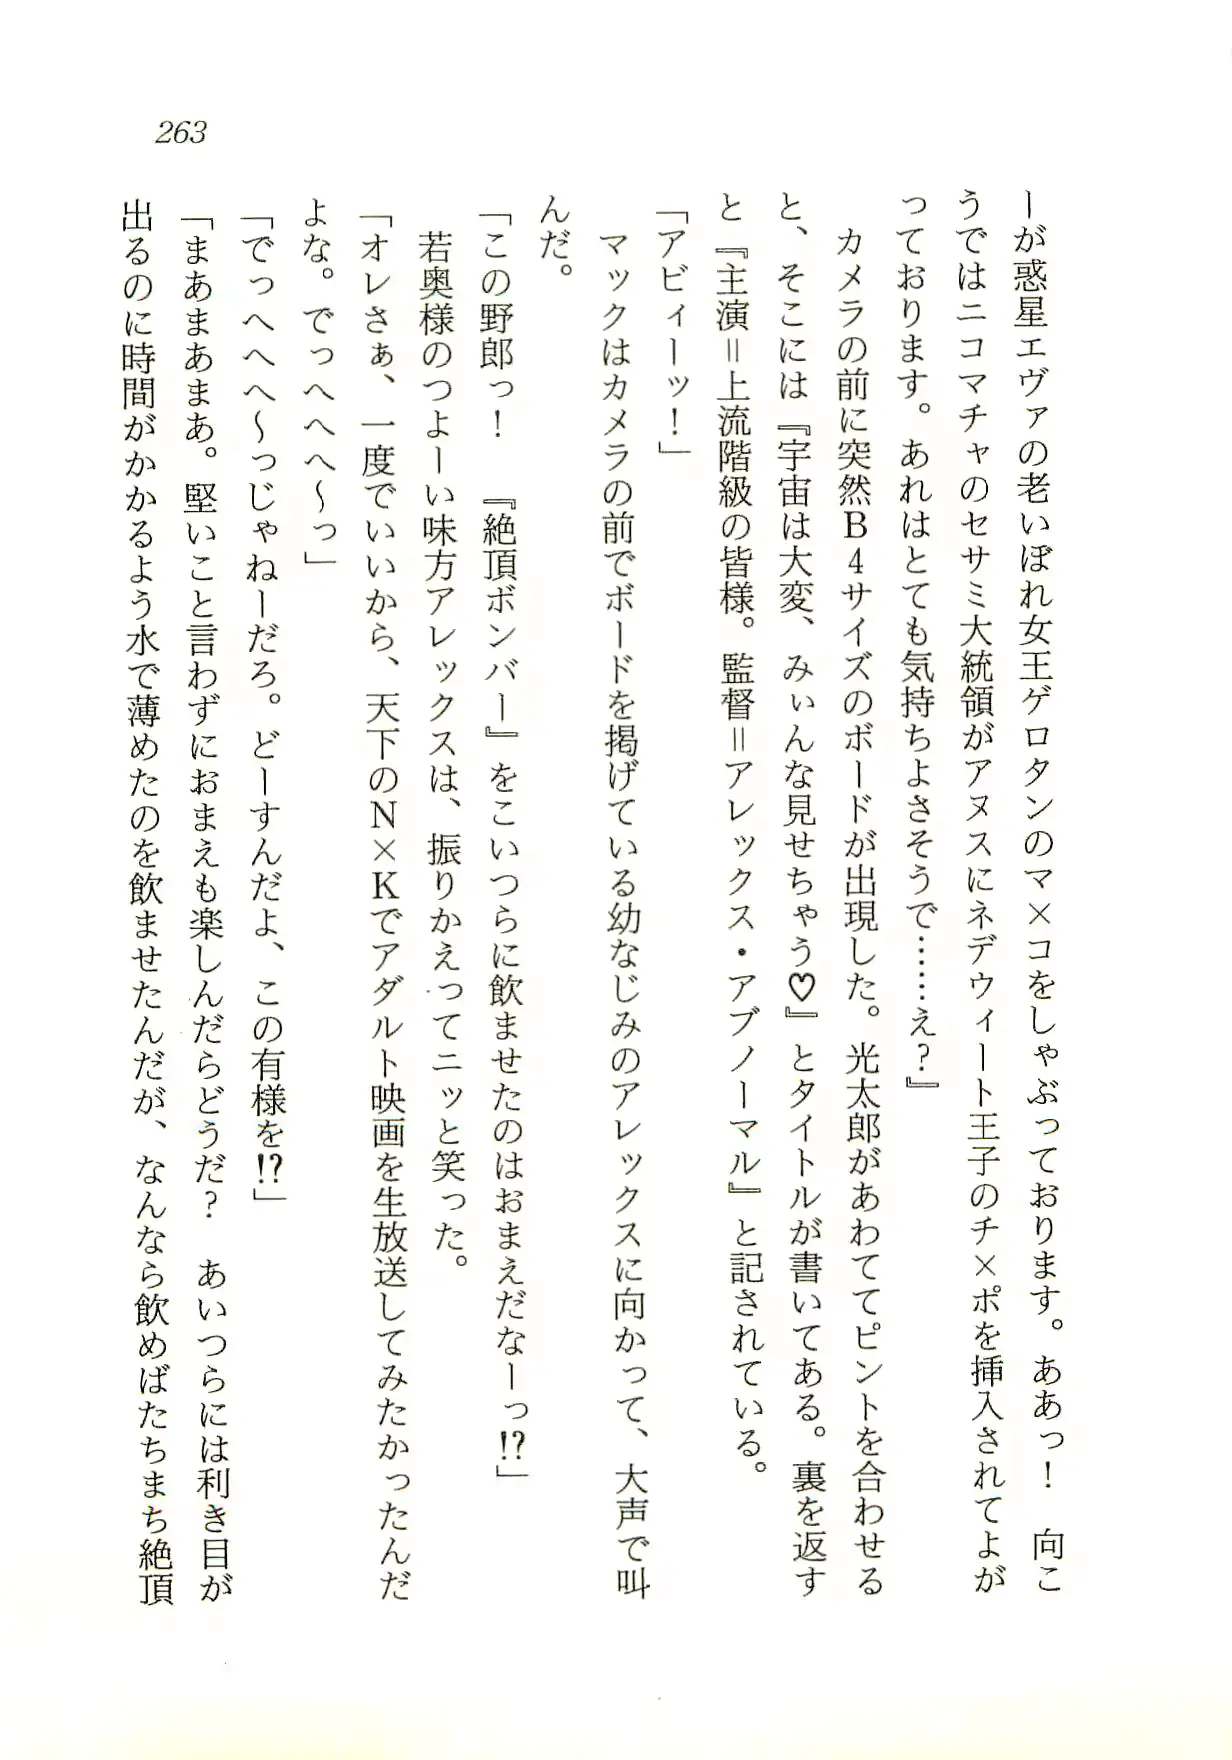 263
ーが惑星エヴァの老いぼれ女王ゲロタンのマ×コをしゃぶっております。ああっ！　向こ
うではニコマチャのセサミ大統領がアヌスにネデウィート王子のチ×ポを挿入されてよが
っております。あれはとても気持ちよさそうで……え？』
　カメラの前に突然Ｂ４サイズのボードが出現した。光太郎があわててピントを合わせる
と、そこには『宇宙は大変、みぃんな見せちゃう♡』とタイトルが書いてある。裏を返す
と『主演＝上流階級の皆様。監督＝アレックス・アブノーマル』と記されている。
「アビィーッ！」
　マックはカメラの前でボードを掲げている幼なじみのアレックスに向かって、大声で叫
んだ。
「この野郎っ！　『絶頂ボンバー』をこいつらに飲ませたのはおまえだなーっ!?」
　若奥様のつよーい味方アレックスは、振りかえってニッと笑った。
「オレさぁ、一度でいいから、天下のＮ×Ｋでアダルト映画を生放送してみたかったんだ
よな。でっへへへ～っ」
「でっへへへ～っじゃねーだろ。どーすんだよ、この有様を!?」
「まあまあまあ。堅いこと言わずにおまえも楽しんだらどうだ？　あいつらには利き目が
出るのに時間がかかるよう水で薄めたのを飲ませたんだが、なんなら飲めばたちまち絶頂